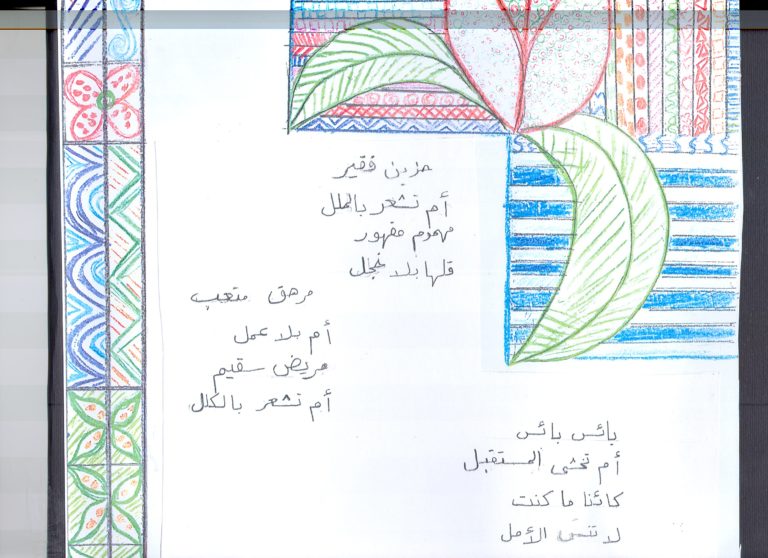 حزين فقير
أم تشعر بالملل
مهموم مقهور
قلها بلا خجل
مرهق متعب
أم بلا عمل
مريض سقيم
أم تشعر بالكلل
يائس بائس
أم تخشى المستقبل
كائنا ما كنت
لا تنس الأمل